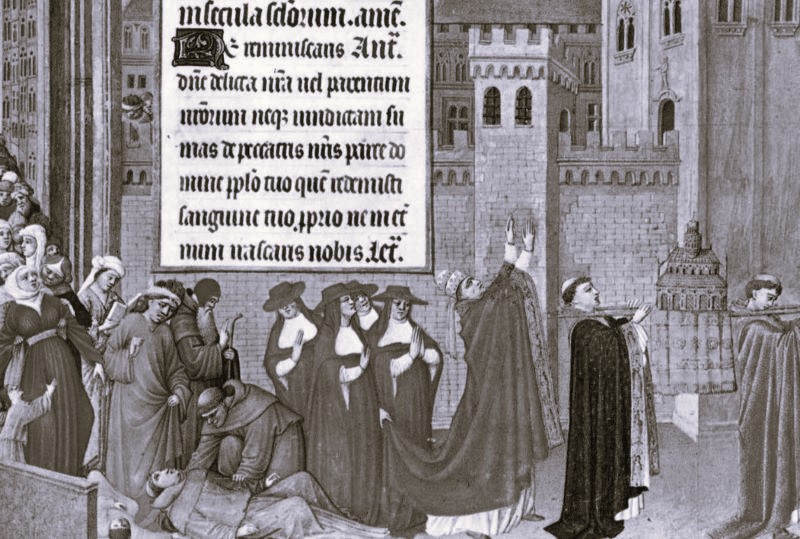 in secula sclorum. amē.
Ne reminiscaris Ant.
dñe delicta nr̄a uel parentum
nr̄orum neqz uindictam su
mas de peccatis nr̄is parce do
mine pplo tuo quē redemisti
sanguine tuo pprio ne in et
num irascaris nobis. let.